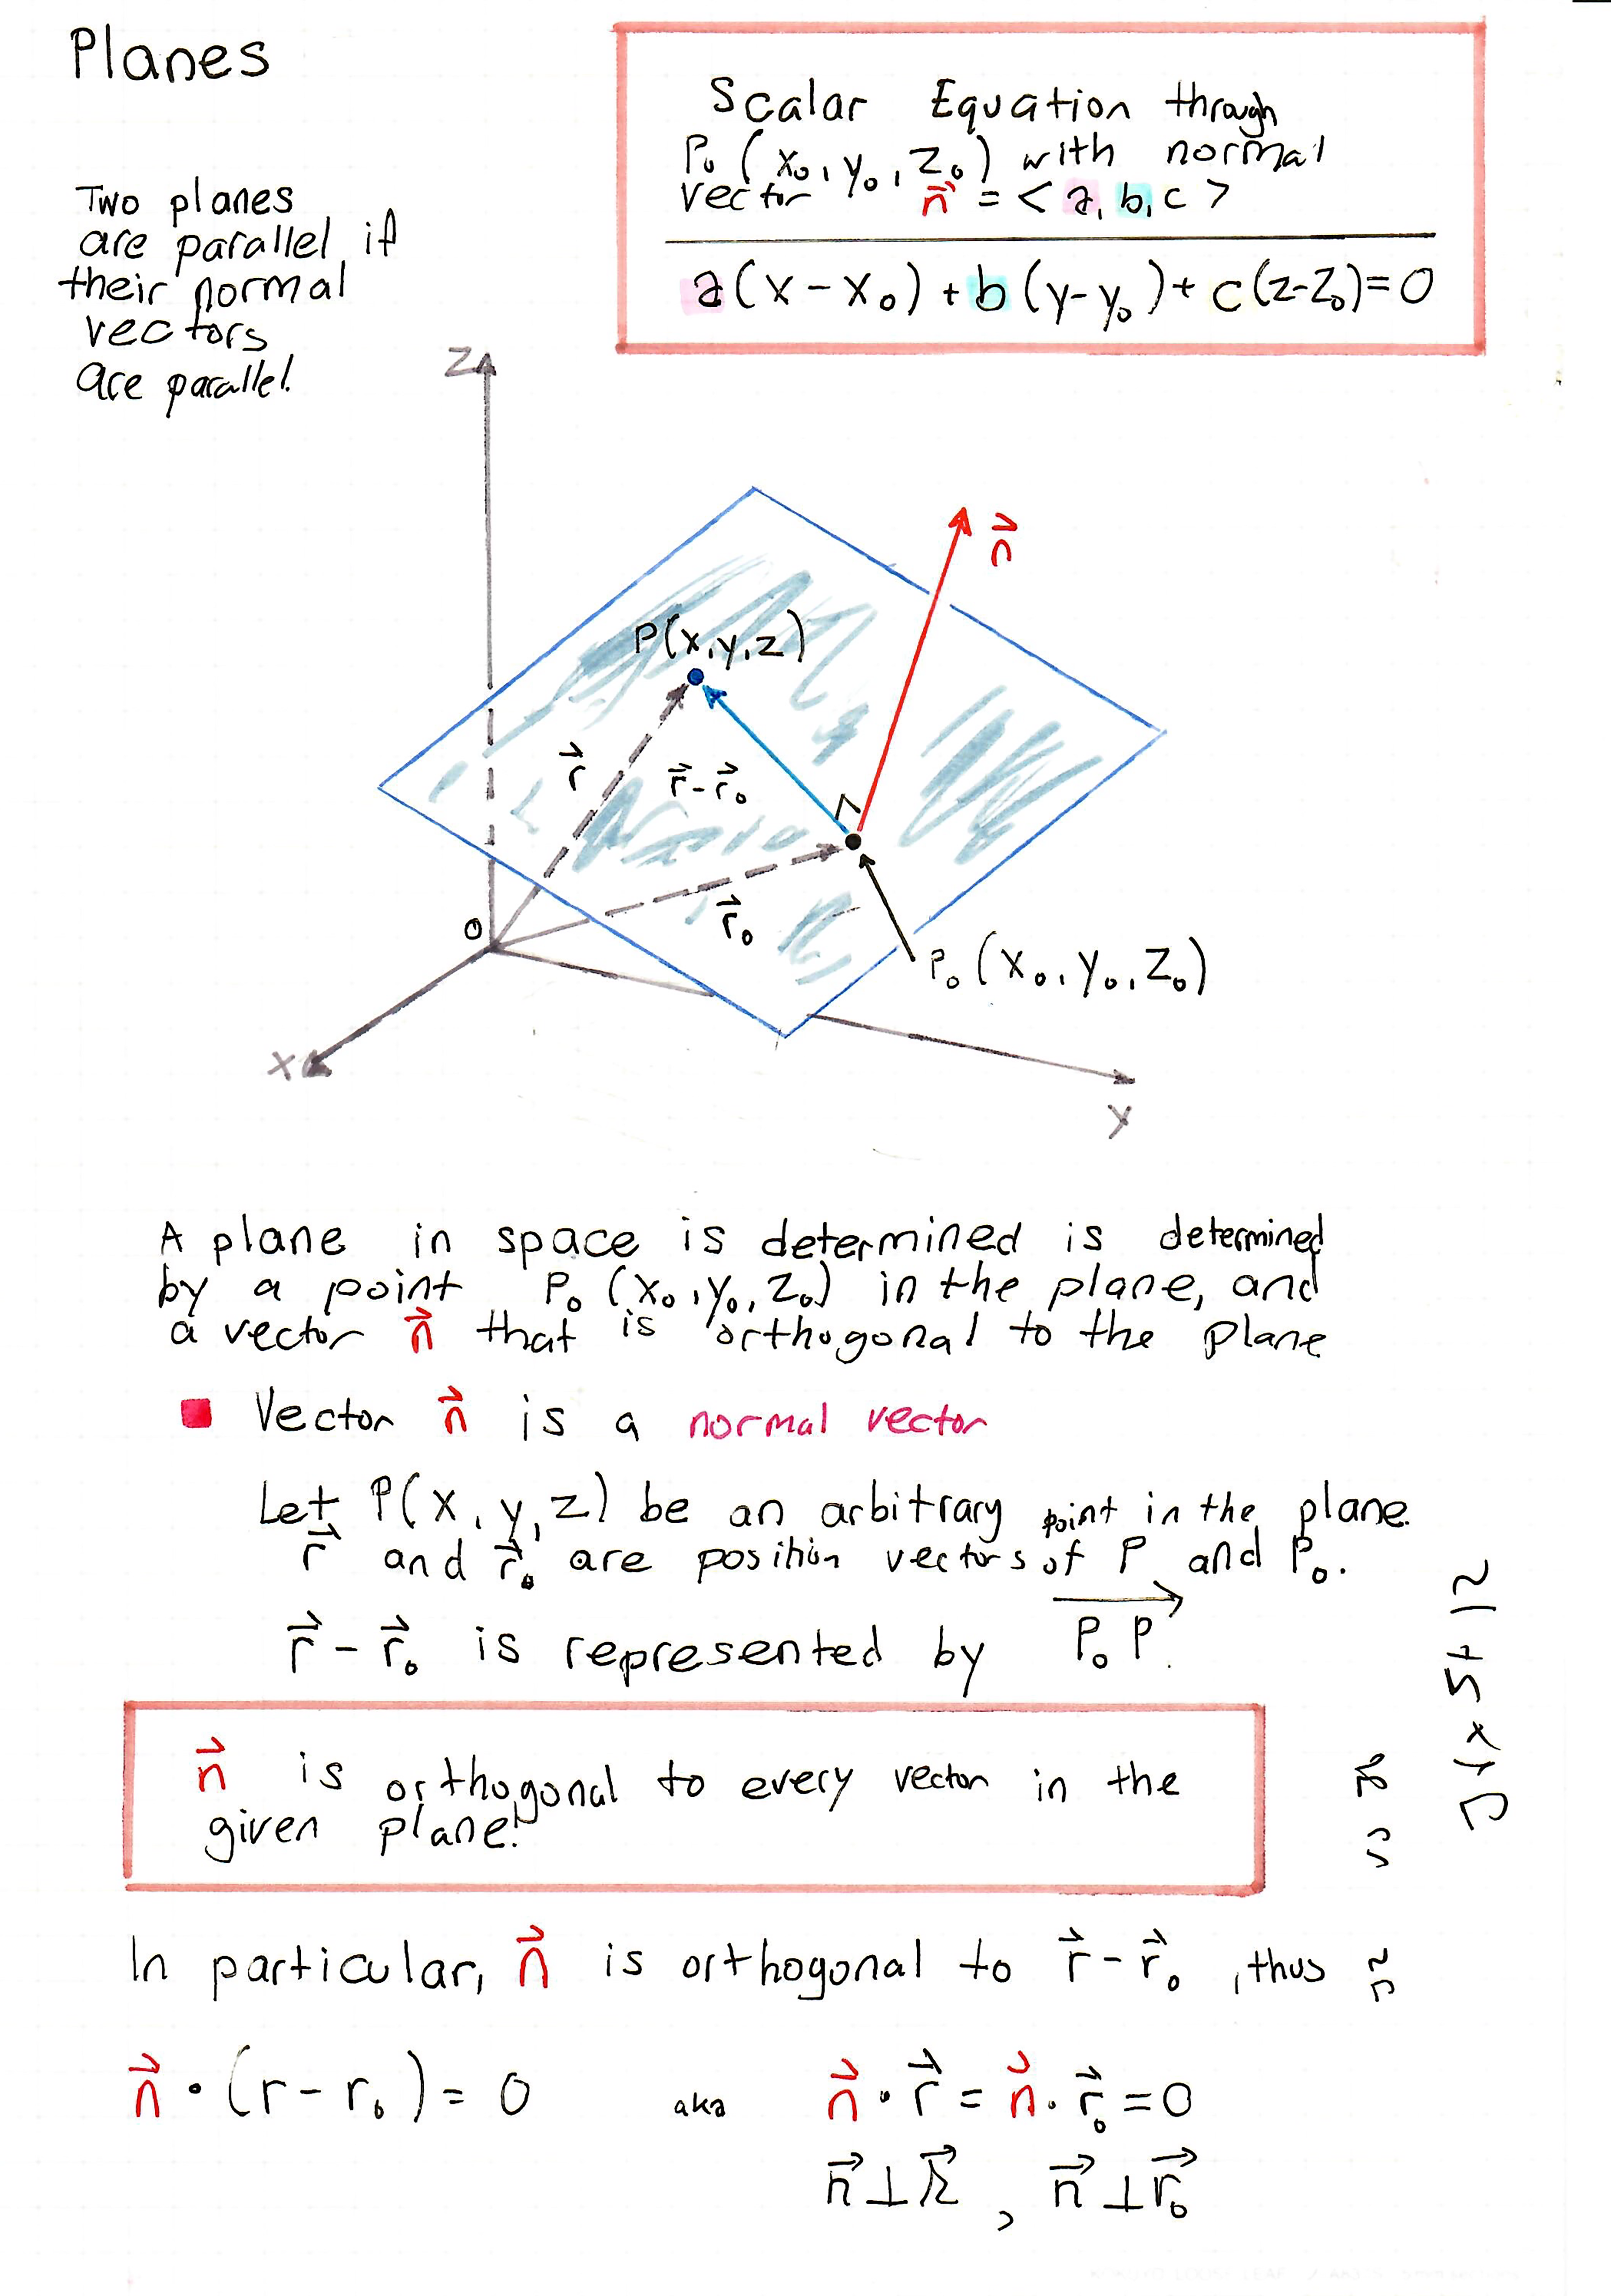 Planes
Two planes
are parallel if
their normal
vectors
are parallel.
Scalar Equation through
P₀ (x₀, y₀, z₀) with normal
vector n⃗ = < a, b, c >
a(x - x₀) + b(y-y₀) + c(z-z₀) = 0
z
n⃗
P(x,y,z)
r⃗
r⃗ - r⃗₀
r⃗₀
O
P₀ (x₀, y₀, z₀)
x
y
A plane in space is determined is determined
by a point P₀ (x₀, y₀, z₀) in the plane, and
a vector n⃗ that is orthogonal to the plane
Vector n⃗ is a normal vector
Let P(x, y, z) be an arbitrary point in the plane.
r⃗ and r⃗₀ are position vectors of P and P₀.
r⃗ - r⃗₀ is represented by P₀P.
n⃗ is orthogonal to every vector in the
given plane!
In particular, n⃗ is orthogonal to r⃗ - r⃗₀, thus
n⃗ · (r - r₀) = 0 aka n⃗ · r⃗ = n⃗ · r⃗₀ = 0
n⃗ ⊥ r⃗ , n⃗ ⊥ r⃗₀